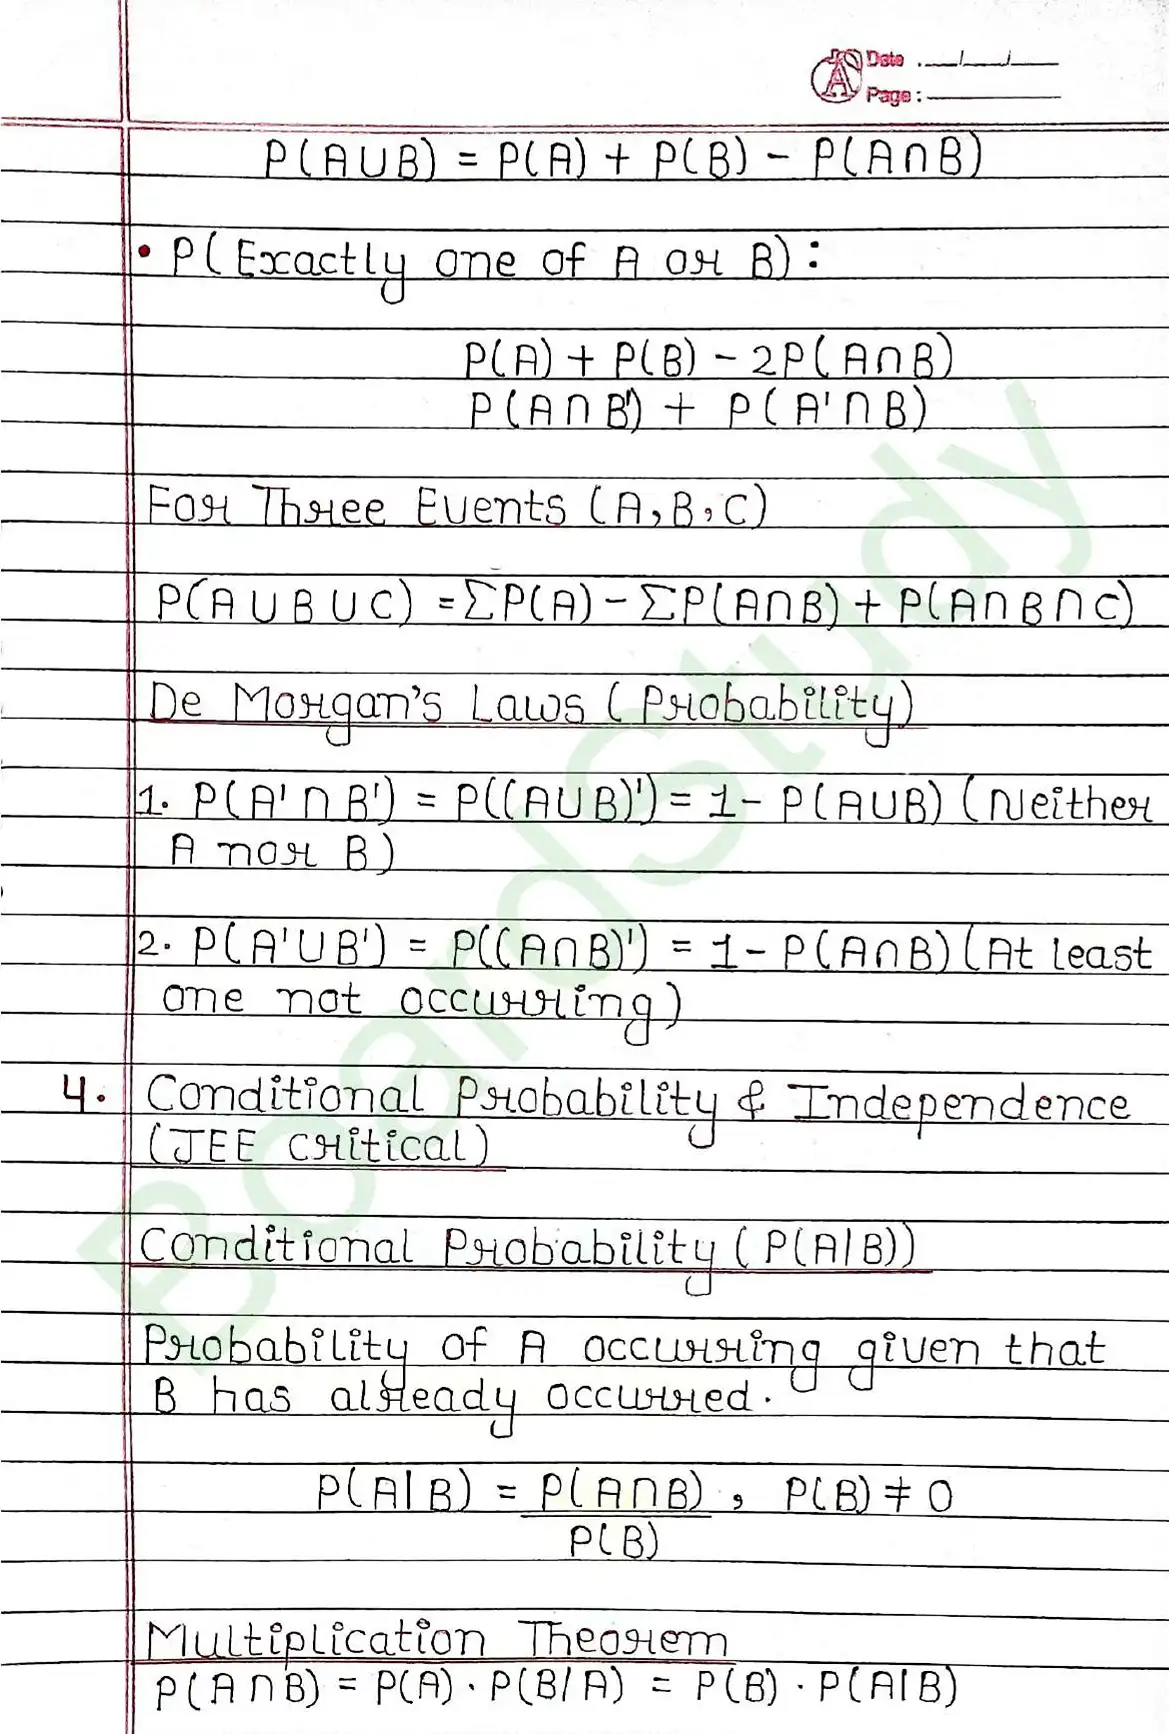 Date : __/__/__
Page : ______
P(A∪B) = P(A) + P(B) - P(A∩B)
• P(Exactly one of A or B) :
P(A) + P(B) - 2P(A∩B)
P(A∩B') + P(A'∩B)
For Three Events (A, B, C)
P(A∪B∪C) = ΣP(A) - ΣP(A∩B) + P(A∩B∩C)
De Morgan's Laws (Probability)
1. P(A'∩B') = P((A∪B)') = 1 - P(A∪B) (Neither
A nor B)
2. P(A'∪B') = P((A∩B)') = 1 - P(A∩B) (At least
one not occurring)
4. Conditional Probability & Independence
(JEE critical)
Conditional Probability (P(A|B))
Probability of A occurring given that
B has already occurred.
P(A|B) = P(A∩B) , P(B) ≠ 0
P(B)
Multiplication Theorem
P(A∩B) = P(A) · P(B/A) = P(B) · P(A|B)
BoardStudy